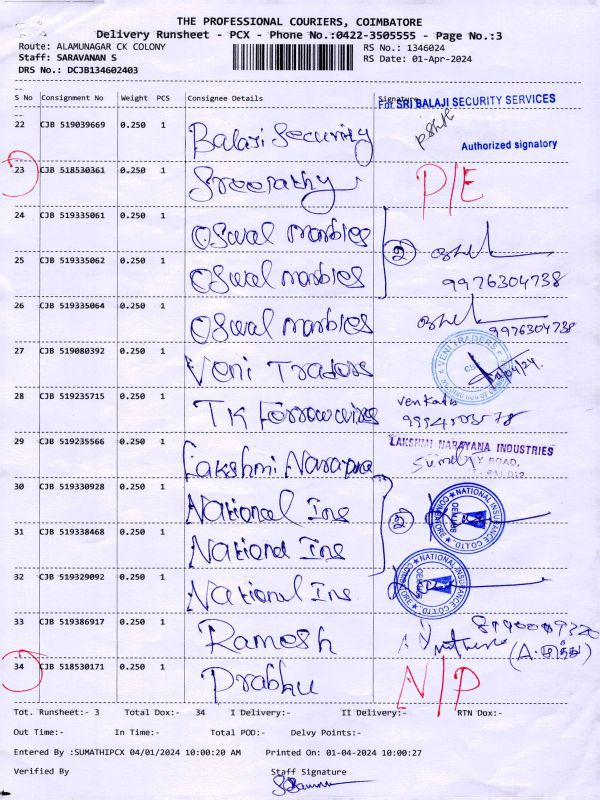 THE PROFESSIONAL COURIERS, COIMBATORE
Delivery Runsheet - PCX - Phone No.:0422-3505555 - Page No.:3
Route: ALAMUNAGAR CK COLONY RS No.: 1346024
Staff: SARAVANAN S RS Date: 01-Apr-2024
DRS No.: DCJB134602403
S No Consignment No Weight PCS Consignee Details Signature
For SRI BALAJI SECURITY SERVICES
22 CJB 519039669 0.250 1 Balaji Security
Authorized signatory
23 CJB 518530361 0.250 1 P/E
24 CJB 519335061 0.250 1 Oswal marbles
25 CJB 519335062 0.250 1 Oswal marbles 2 9976304738
26 CJB 519335064 0.250 1 Oswal marbles 9976304738
27 CJB 519080392 0.250 1 Veni Traders VENI TRADERS
28 CJB 519235715 0.250 1 TK Venkat
29 CJB 519235566 0.250 1 Lakshmi Narayana LAKSHMI NARAYANA INDUSTRIES
30 CJB 519330928 0.250 1 National Ins
31 CJB 519338468 0.250 1 National Ins 2 NATIONAL INSURANCE CO LTD
32 CJB 519329092 0.250 1 National Ins NATIONAL INSURANCE CO LTD
33 CJB 519386917 0.250 1 Ramesh
34 CJB 518530171 0.250 1 Prabhu N/P
Tot. Runsheet:- 3 Total Dox:- 34 I Delivery:- II Delivery:- RTN Dox:-
Out Time:- In Time:- Total POD:- Delvy Points:-
Entered By :SUMATHIPCX 04/01/2024 10:00:20 AM Printed On: 01-04-2024 10:00:27
Verified By Staff Signature